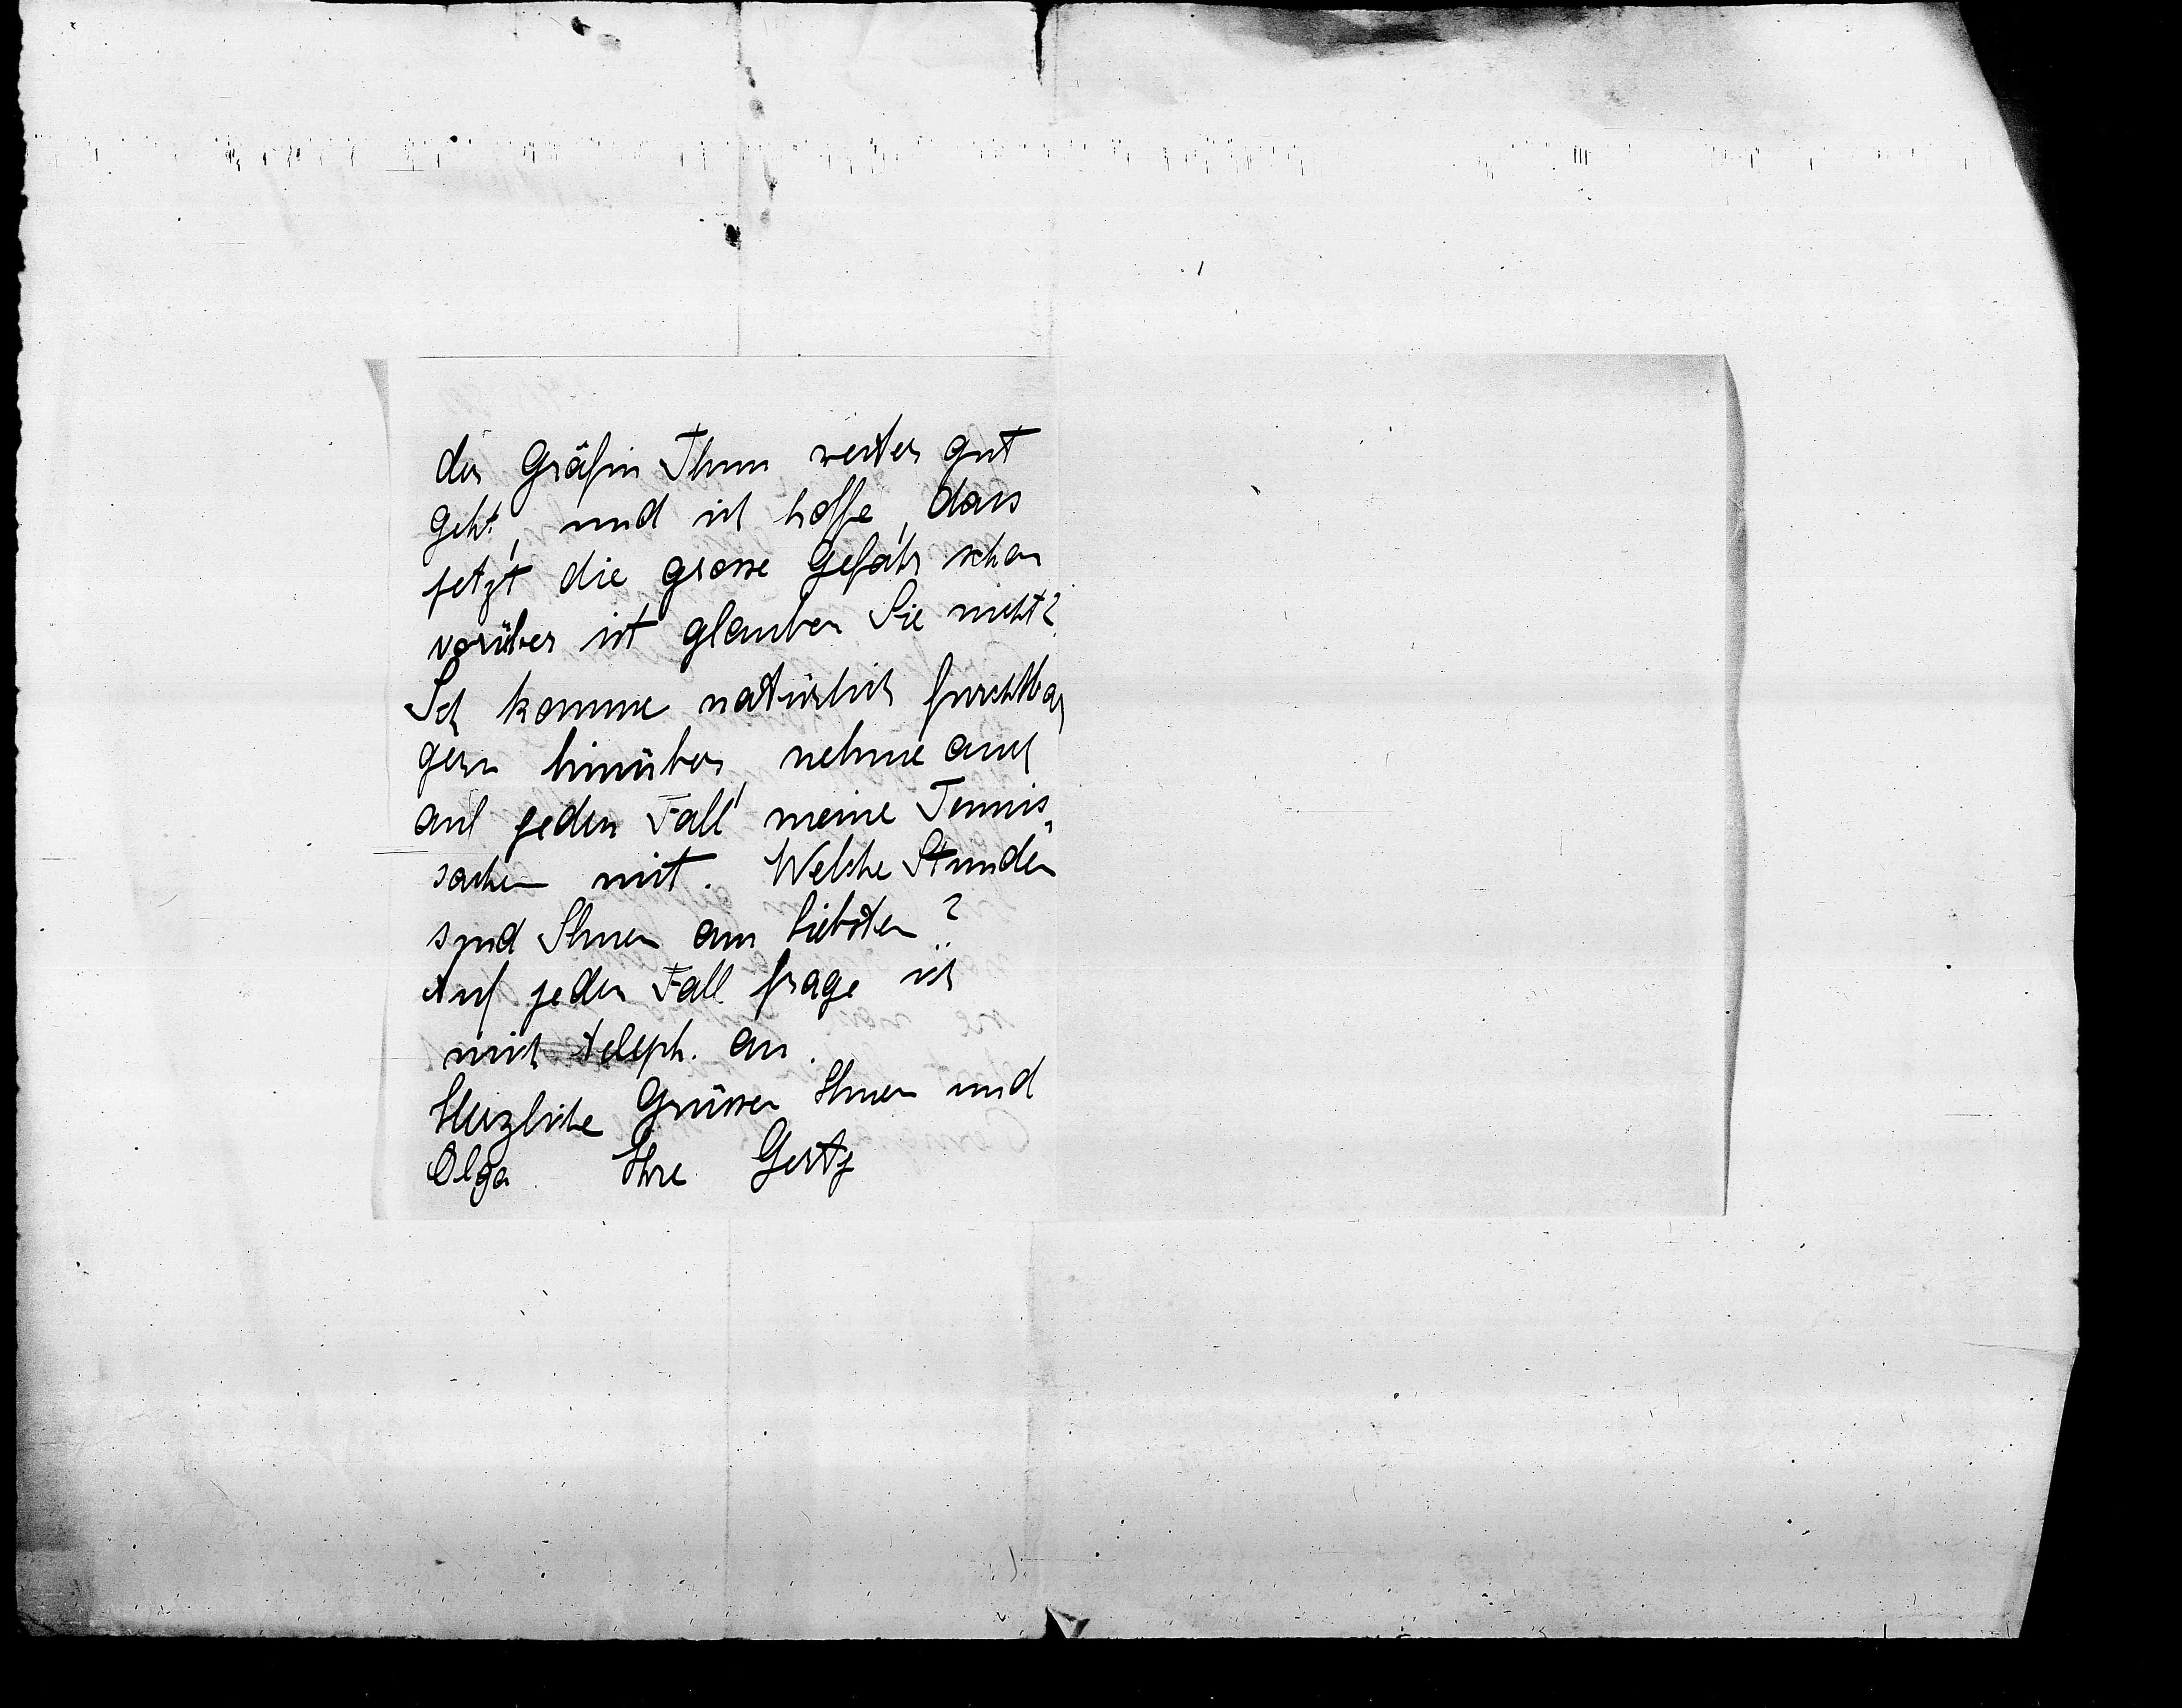 der Gräfin Thun weiter gut
geht, und ich hoffe, dass
jetzt die grosse Gefahr schon
vorüber ist glauben Sie nicht?
Ich komme natürlich furchtbar
gern hinüber, nehme auch
auf jeden Fall meine Tennis„
sachen mit. Welche Stunden
sind Ihnen am liebsten?
Auf jeden Fall frage ich
mich teleph. an.
Herzliche Grüsse Ihnen und
Olga Ihre